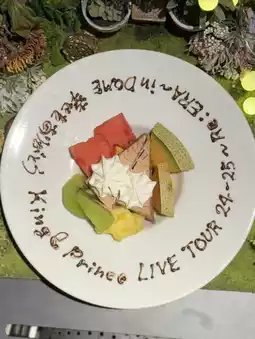 King & Prince LIVE TOUR 24-25 ~Re:ERA~ in DOME
幸せをありがとう